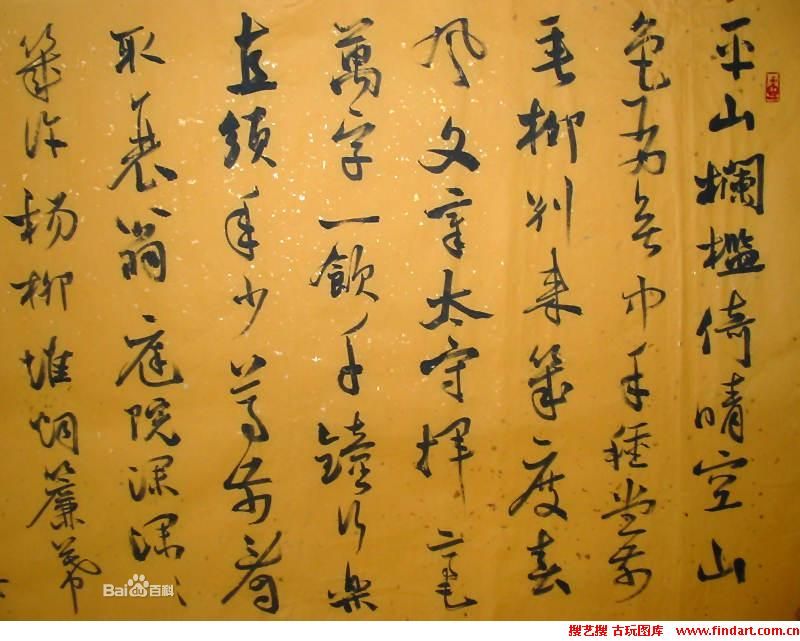 平山欄檻倚晴空山
色有无中手種堂前
垂柳别来幾度春
風文章太守揮毫
萬字一飲千鍾行樂
直須年少尊前看
取衰翁庭院深深
幾许楊柳堆烟簾幕
Bai du 百科
搜艺搜 古玩图库 www.findart.com.cn